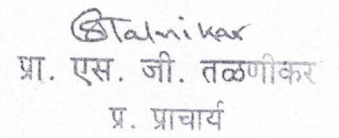 STalnikar
प्रा. एस. जी. तळणीकर
प्र. प्राचार्य